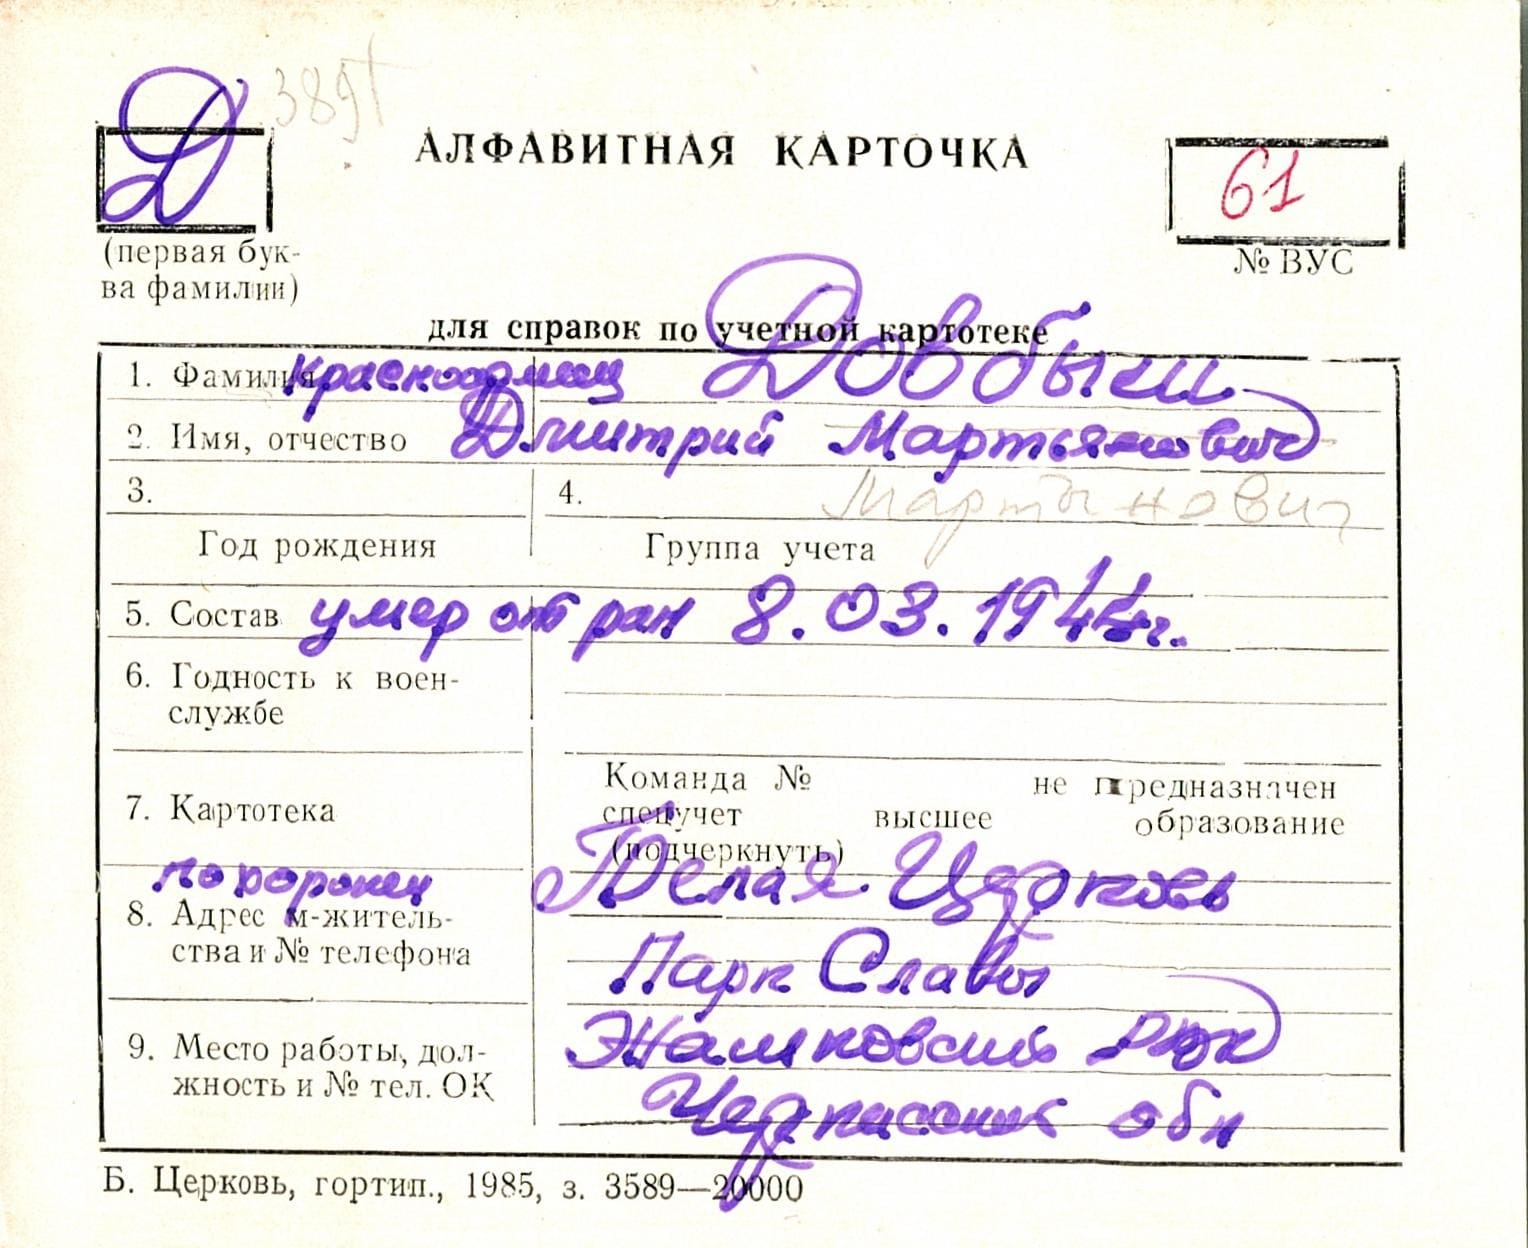 Д 389
АЛФАВИТНАЯ КАРТОЧКА
61
(первая бук-
ва фамилии)
№ ВУС
для справок по учетной картотеке
1. Фамилия красноармеец Довбыш
2. Имя, отчество Дмитрий Мартьянович
3. 4. Мартынович
Год рождения Группа учета
5. Состав умер от ран 8.03.1944г.
6. Годность к воен-
службе
Команда № не предназначен
7. Картотека
спецучет высшее образование
(подчеркнуть)
похоронен Белая Церковь
8. Адрес м-житель-
ства и № телефона
Парк Славы
9. Место работы, дол-
жность и № тел. ОК
Жашковский РВК
Черкасской обл
Б. Церковь, гортип., 1985, з. 3589—20000